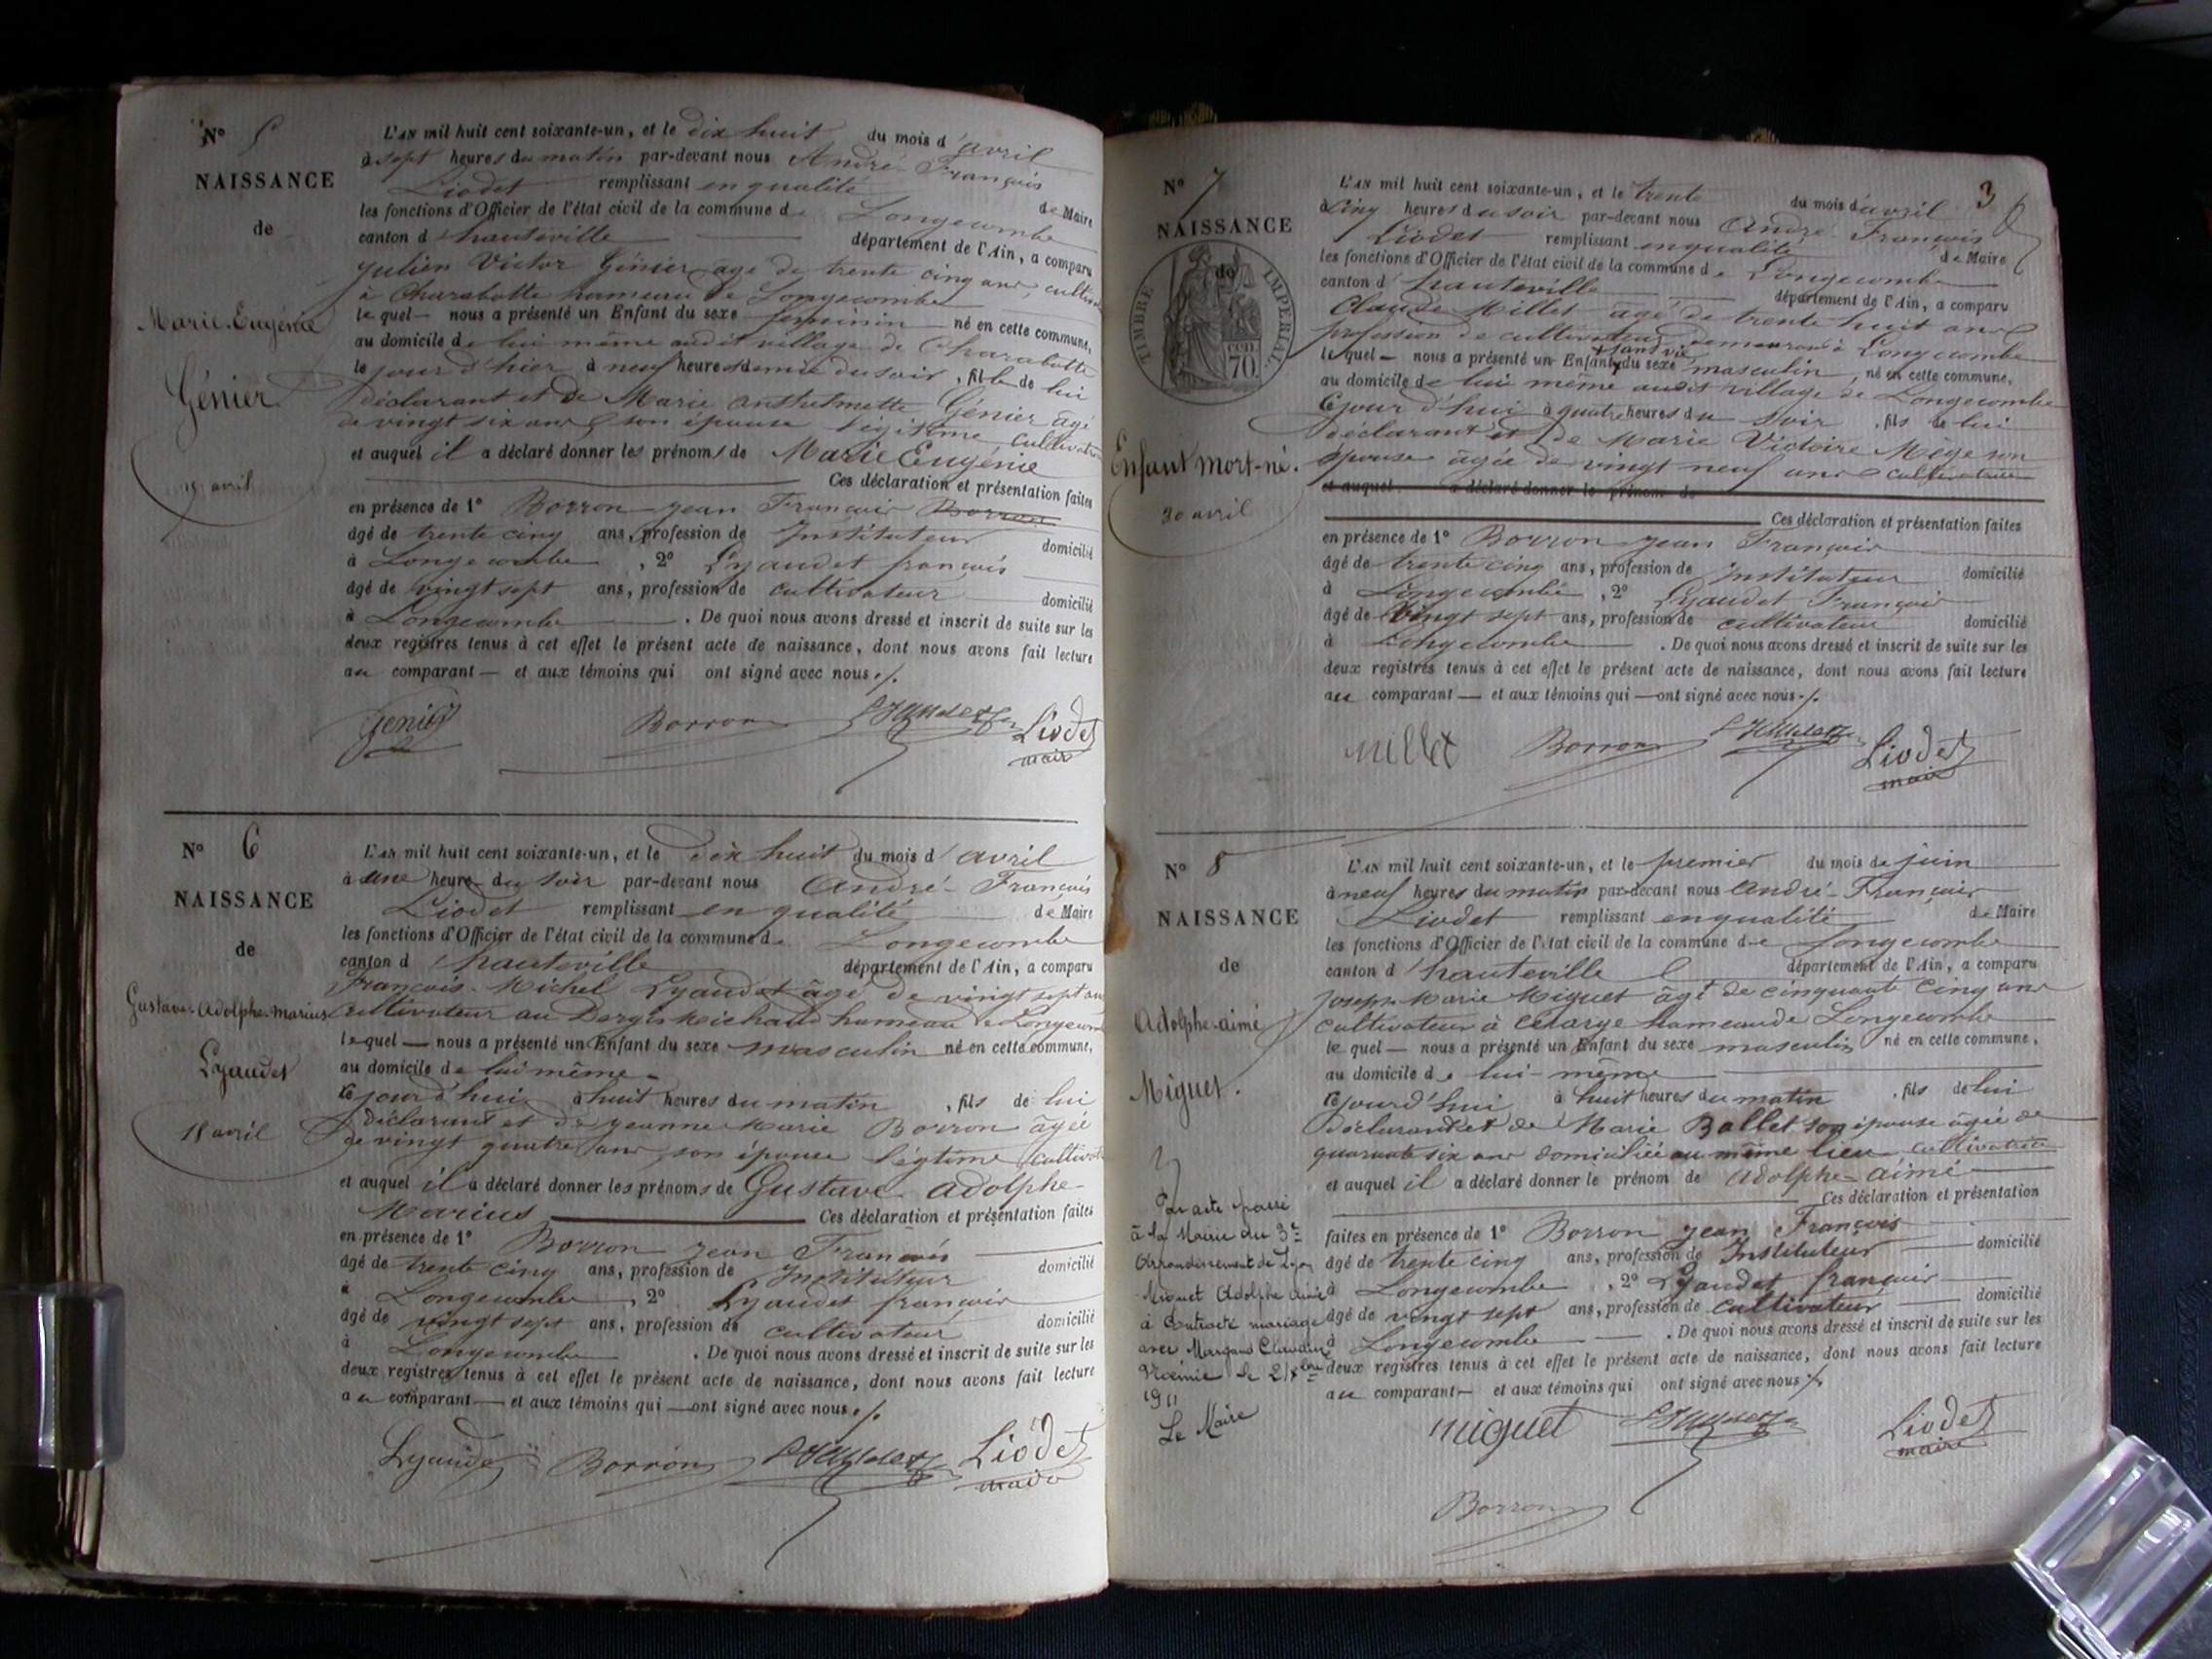 N° 5
NAISSANCE
de
Marie-Eugénie
Génier
avril
L'AN mil huit cent soixante-un, et le dix huit du mois d'avril
à sept heures du matin par-devant nous André-François
Liodet remplissant en qualité de Maire
les fonctions d'Officier de l'état civil de la commune de Longecombe
canton d'hauteville département de l'Ain, a comparu
Julien Victor Génier agé de trente cinq ans,
à Charabotte hameau de Longecombe
lequel — nous a présenté un Enfant du sexe féminin né en cette commune,
au domicile de lui même audit village de Charabotte
le jour d'hier à neuf heures demie du soir, fille de lui
déclarant et de Marie Génier âgé
de vingt six ans son épouse légitime
et auquel il a déclaré donner les prénoms de Marie Eugénie
Ces déclaration et présentation faites
en présence de 1° Borron jean François Borron
âgé de trente cinq ans, profession de Instituteur domicilié
à Longecombe, 2° Lyaudet françois
âgé de vingt sept ans, profession de cultivateur domicilié
à Longecombe. De quoi nous avons dressé et inscrit de suite sur les
deux registres tenus à cet effet le présent acte de naissance, dont nous avons fait lecture
au comparant — et aux témoins qui ont signé avec nous ./.
Genier Borron Liodet
maire
N° 6
NAISSANCE
de
Gustave-Adolphe-Marius
Lyaudet
18 avril
L'AN mil huit cent soixante-un, et le dix huit du mois d'avril
à une heure du soir par-devant nous André-François
Liodet remplissant en qualité de Maire
les fonctions d'Officier de l'état civil de la commune de Longecombe
canton d'hauteville département de l'Ain, a comparu
François-Michel Lyaudet âgé de vingt sept ans
cultivateur au hameau de
lequel — nous a présenté un Enfant du sexe masculin né en cette commune,
au domicile de lui même
cejourd'hui à huit heures du matin, fils de lui
déclarant et de jeanne Marie Borron âgée
de vingt quatre ans, son épouse légitime
et auquel il a déclaré donner les prénoms de Gustave Adolphe
Marius Ces déclaration et présentation faites
en présence de 1° Borron jean François
âgé de trente cinq ans, profession de Instituteur domicilié
à Longecombe, 2° Lyaudet françois
âgé de vingt sept ans, profession de cultivateur domicilié
à Longecombe. De quoi nous avons dressé et inscrit de suite sur les
deux registres tenus à cet effet le présent acte de naissance, dont nous avons fait lecture
au comparant — et aux témoins qui — ont signé avec nous ./.
Lyaudet Borron Liodet
maire
3
N° 7
NAISSANCE
de
TIMBRE IMPERIAL
70
Enfant mort-né.
30 avril
L'AN mil huit cent soixante-un, et le trente du mois d'avril
à cinq heures du soir par-devant nous André François
Liodet remplissant en qualité de Maire
les fonctions d'Officier de l'état civil de la commune de Longecombe
canton d'hauteville département de l'Ain, a comparu
Claude Millet âgé de trente huit ans
profession de cultivateur demeurant à Longecombe
sans vie
lequel — nous a présenté un Enfant du sexe masculin, né en cette commune,
au domicile de lui même audit village de Longecombe
Cejour d'hui à quatre heures du soir, fils de lui
déclarant et de Marie Victoire Mège son
épouse âgée de vingt neuf ans cultivatrice
et auquel a déclaré donner le prénom de
Ces déclaration et présentation faites
en présence de 1° Borron jean François
âgé de trente cinq ans, profession de Instituteur domicilié
à Longecombe, 2° Lyaudet François
âgé de Vingt sept ans, profession de cultivateur domicilié
à Longecombe. De quoi nous avons dressé et inscrit de suite sur les
deux registres tenus à cet effet le présent acte de naissance, dont nous avons fait lecture
au comparant — et aux témoins qui — ont signé avec nous ./.
Millet Borron Liodet
maire
N° 8
NAISSANCE
de
Adolphe-aimé
Miguet.
Par acte passé
à la Mairie du 3e
Arrondissement de Lyon
Miguet Adolphe aimé
à Contracté mariage
avec
le
1911
Le Maire
L'AN mil huit cent soixante-un, et le premier du mois de juin
à neuf heures du matin par-devant nous André-François
Liodet remplissant en qualité de Maire
les fonctions d'Officier de l'état civil de la commune de Longecombe
canton d'hauteville département de l'Ain, a comparu
Joseph Marie Miguet âgé de cinquante cinq ans
cultivateur à hameau de Longecombe
lequel — nous a présenté un Enfant du sexe masculin né en cette commune,
au domicile de lui-même
cejourd'hui à huit heures du matin, fils de lui
Déclarant et de Marie Ballet son épouse âgée de
quarante six ans domiciliée au même lieu cultivatrice
et auquel il a déclaré donner le prénom de Adolphe-aimé
Ces déclaration et présentation
faites en présence de 1° Borron jean François
âgé de trente cinq ans, profession de Instituteur domicilié
à Longecombe, 2° Lyaudet françois
âgé de vingt sept ans, profession de cultivateur domicilié
à Longecombe. De quoi nous avons dressé et inscrit de suite sur les
deux registres tenus à cet effet le présent acte de naissance, dont nous avons fait lecture
au comparant — et aux témoins qui ont signé avec nous ./.
Miguet Liodet
maire
Borron